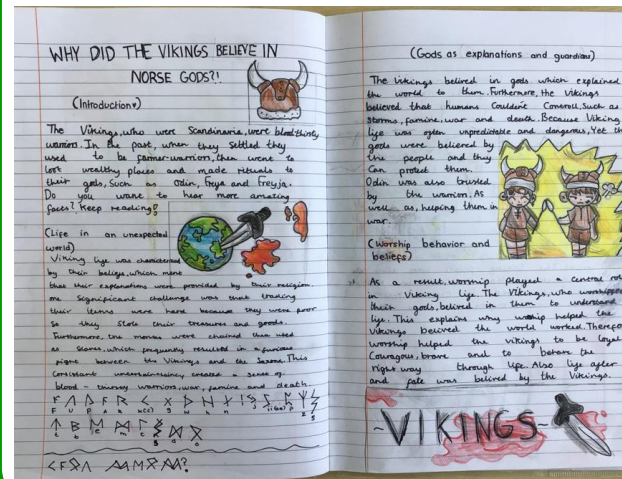 WHY DID THE VIKINGS BELIEVE IN
NORSE GODS?!
(Introduction)
The Vikings, who were Scandinavia, were bloodthirsty
warriors. In the past, when they settled they
used to be farmer-warriors, then went to
loot wealthy places and made rituals to
their gods, Such as Odin, Freya and Freyja.
Do you want to hear more amazing
facts? Keep reading!
(Life in an unexpected
world)
Viking life was characterised
by their beliefs, which ment
that their explanations were provided by their religion.
One Significant challenge was that trading
their items were hard because they were poor
So they Stole their treasures and goods.
Furthermore, the monks were chained then used
as Slaves, which frequently resulted in a furious
fight between the Vikings and the Saxons. This
Consistant created a sense of
blood-thirsty warriors, war, famine and death.
(Gods as explanations and guardians)
The Vikings belived in gods which explained
the world to them. Furthermore, the Vikings
believed that humans Couldn't Conroll, such as
Storms, famine, war and death. Because Viking
life was often unpredictable and dangerous, Yet the
gods were believed by
the people and they
Can protect them.
Odin was also trusted
by the warriors. As
well as, helping them in
war.
(Worship behavior and
beliefs)
As a result, worship played a central role
in Viking life. The Vikings, who worshipped
their gods, belived in them to understand
life. This explains why worship helped the
Vikings belived the world worked. Therefore
worship helped the Vikings to be loyal,
Couragous, brave and to behave the
right way through life. Also life after
and fate was belived by the Vikings.
~VIKINGS~